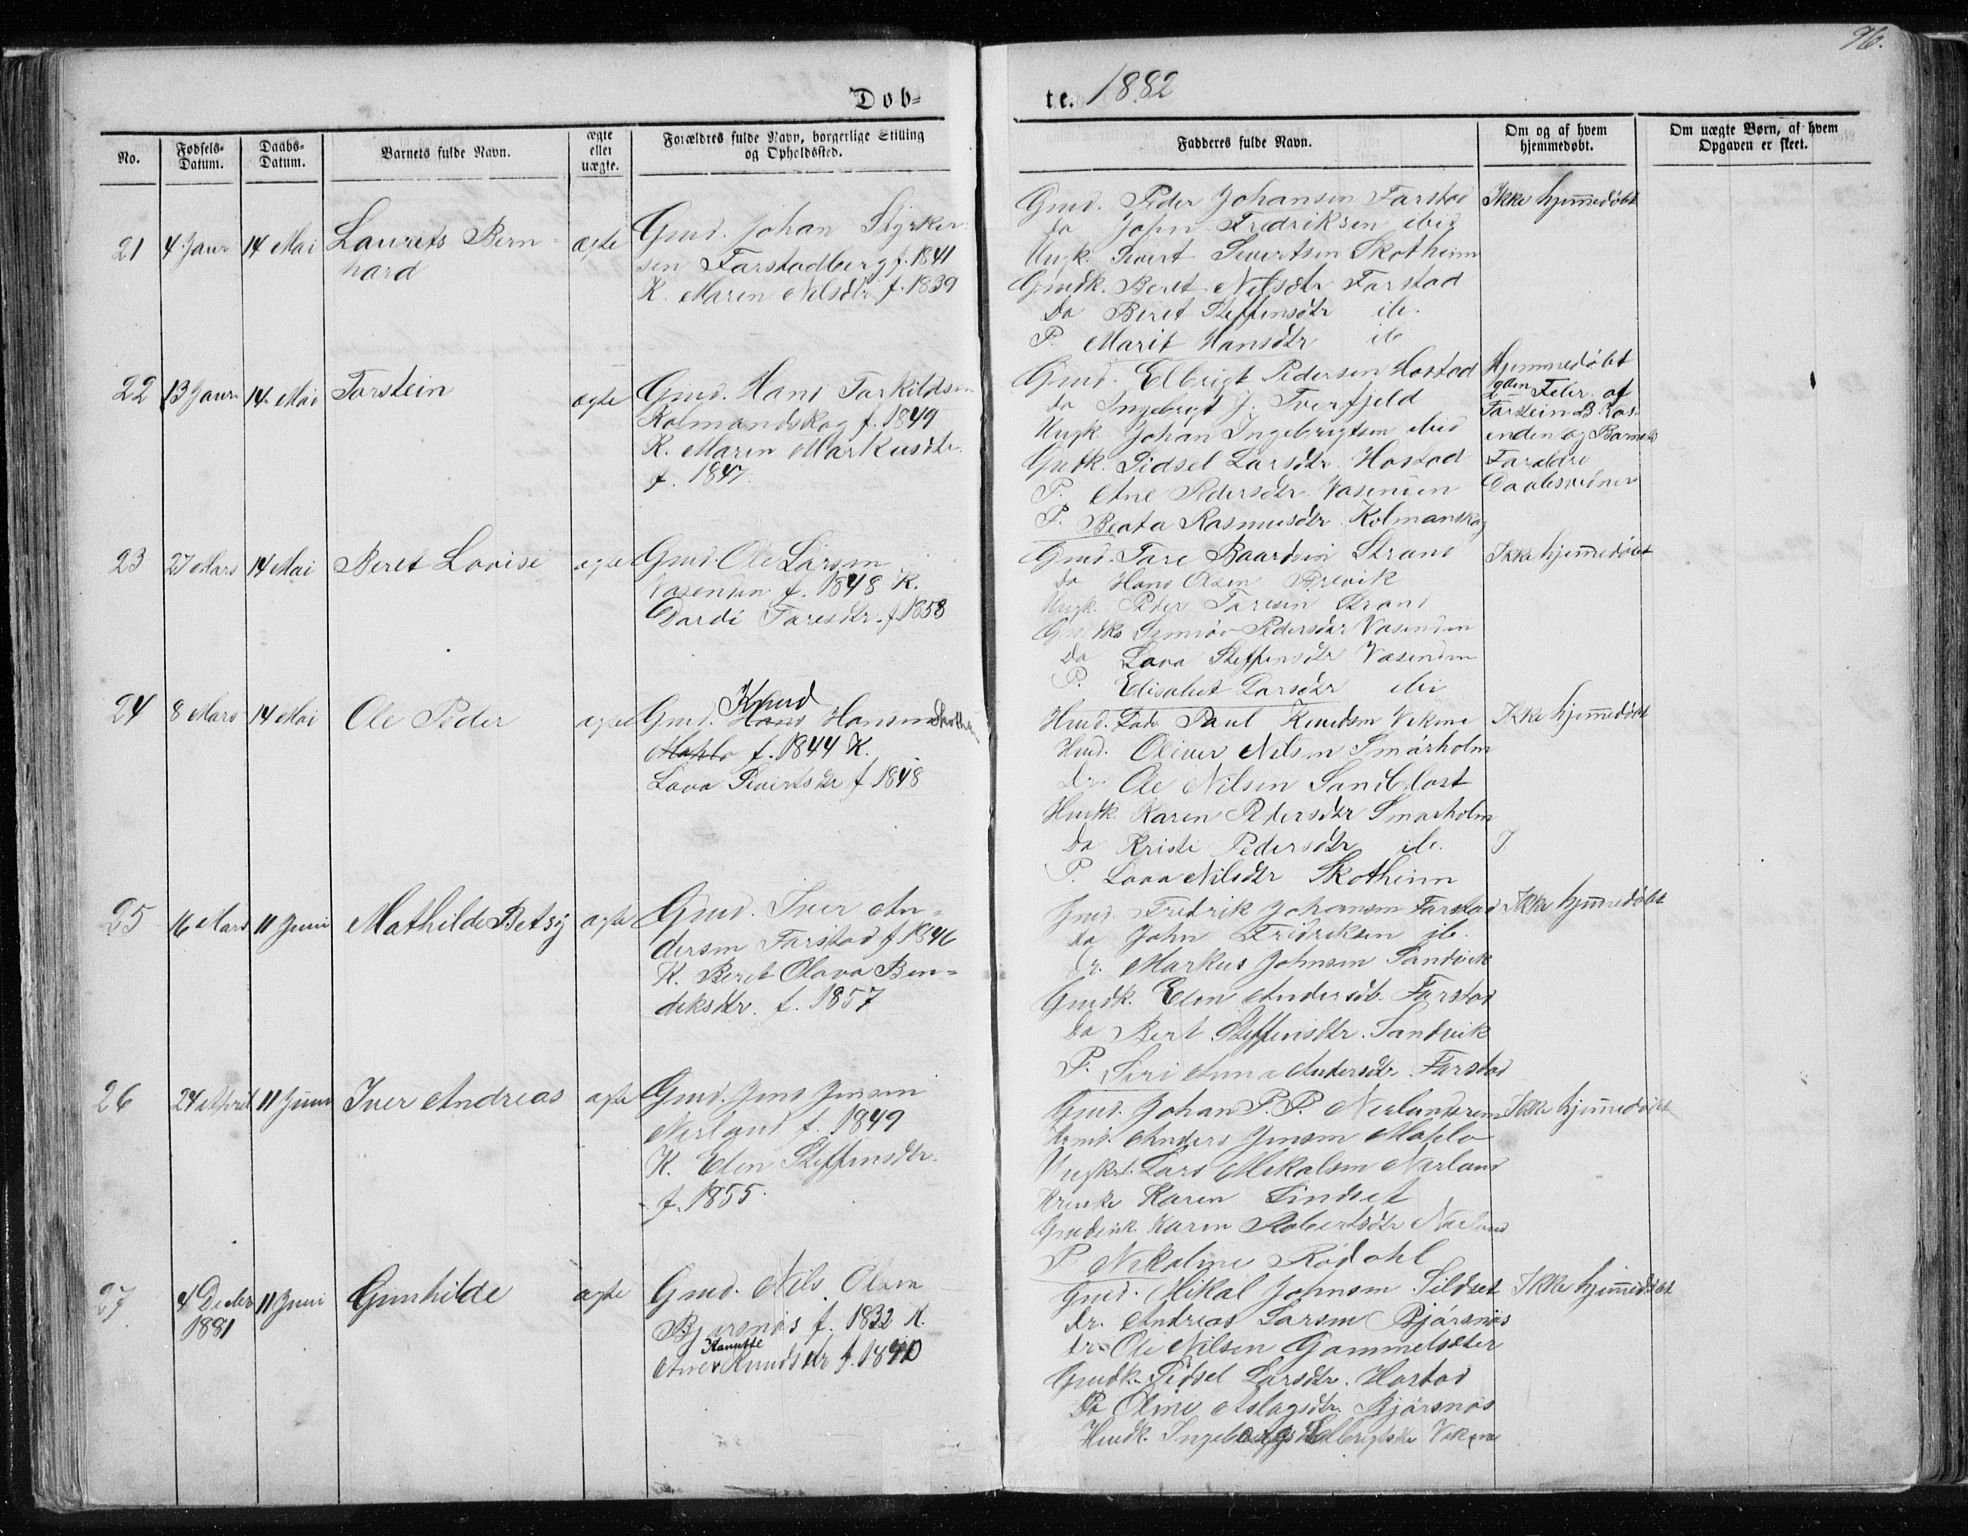 96.
Døb-
te. 1882
No.
Fødsels-
Datum.
Daabs-
Datum.
Barnets fulde Navn.
ægte
eller
uægte.
Forældres fulde Navn, borgerlige Stilling
og Opholdssted.
Fadderes fulde Navn.
Om og af hvem
hjemmedøbt.
Om uægte Børn, af hvem
Opgaven er skeet.
21
4 Janr
14 Mai
Laurits Bern-
hard
ægte
Gmd. Johan Styrker-
sen Farstadberg f. 1841
K. Maren Nilsdtr f. 1839
Gmd. Peder Johansen Farstad
do John Fredriksen ibid
Ungk. Sivert Sivertsen Skotheim
Gmdk. Beret Nilsdtr Farstad
Do Beret Steffensdtr ib.
P. Marit Hansdtr ib
Ikke hjemmedøbt
22
13 Janr
14 Mai
Torstein
ægte
Gmd. Hans Torkildsen
Kolmandskog f. 1849
K. Maren Markusdtr.
f. 1847.
Gmd. Elbrigt Pedersen Hostad
do Ingebrigt J. Tverfjeld
Ungk. Johan Ingebrigtsen ibid
Gmdk. Sidsel Larsdtr. Hostad
P. Ane Pedersdtr Vasenden
P. Beata Rasmusdtr. Kolmanskog
Hjemmedøbt
2den Febr. af
Torstein B. Vas-
enden og Barnets
Forældre
Daabsvidner
23
27 Mars
14 Mai
Beret Lovise
ægte
Gmd Ole Larsen
Vasenden f. 1848 K.
Dordi Toresdtr. f. 1858
Gmd. Tore Baardsen Strand
Do Hans Olsen
Ungk. Peder Toresen Strand
Pedersdtr Vasenden
Do Lava Steffensdtr Vasenden
P. Elisabet Larsdtr ibi
Ikke hjemmedøbt
24
8 Mars
14 Mai
Ole Peder
ægte
Knud
Gmd. Hans Hansen Skotheim
Malo f. 1844 K.
Lava Sivertsdtr f 1848
Paul Knudsen Vikene
Hmd. Oliver Nilsen Smørholm
Dr. Ole Nilsen Sandblost
Hmdk. Karen Pedersdtr Smørholm
Do Kriste Pedersdtr ib.
P. Lava Nilsdtr Skotheim
Ikke hjemmedøbt
25
16 Mars
11 Juni
Mathilde Betsy
ægte
Gmd. Iver An-
dersen Farstad f 1846
K. Beret Olava Ben-
diksdtr. f. 1857
Gmd. Fredrik Johansen Farstad
do John Fridriksen ib.
Dr. Markus Johnsen Sandvik
Gmdk. Elen Andersdtr. Farstad
Do Bert Steffensdtr. Sandvik
P. Siri Anna Andersdtr. Farstad
Ikke hjemmedøbt
26
24 April
11 Juni
Iver Andreas
ægte
Gmd. Jens Jensen
Nerland f. 1849
K. Elen Steffensdtr.
f. 1855.
Gmd. Johan P. P. Nerlandsrem
Anders Jensen Malo
Ungkrl. Lars Mikalsen Nerland
Karen Lindset
Karen Robertsdtr Nerland
P Nikoline Rødahl
Ikke hjemmedøbt
27
4 Decbr
1881
11 Juni
Gunhilde
ægte
Gmd. Nils Olsen
Bjørsnøs f. 1832 K.
Kanutte
Ane Knudsdtr f. 1840
Gmd. Mikal Johnsen Sildset
Dr. Andreas Larsen Bjørsnøs
Dr Ole Nilsen Gammelsæter
Gmdk. Sidsel Larsdtr. Hostad
Do Oline Aslagsdtr. Bjørsnøs
Hmdk. Ingeborg Elbrigtsdtr Viken
Ikke hjemmedøbt